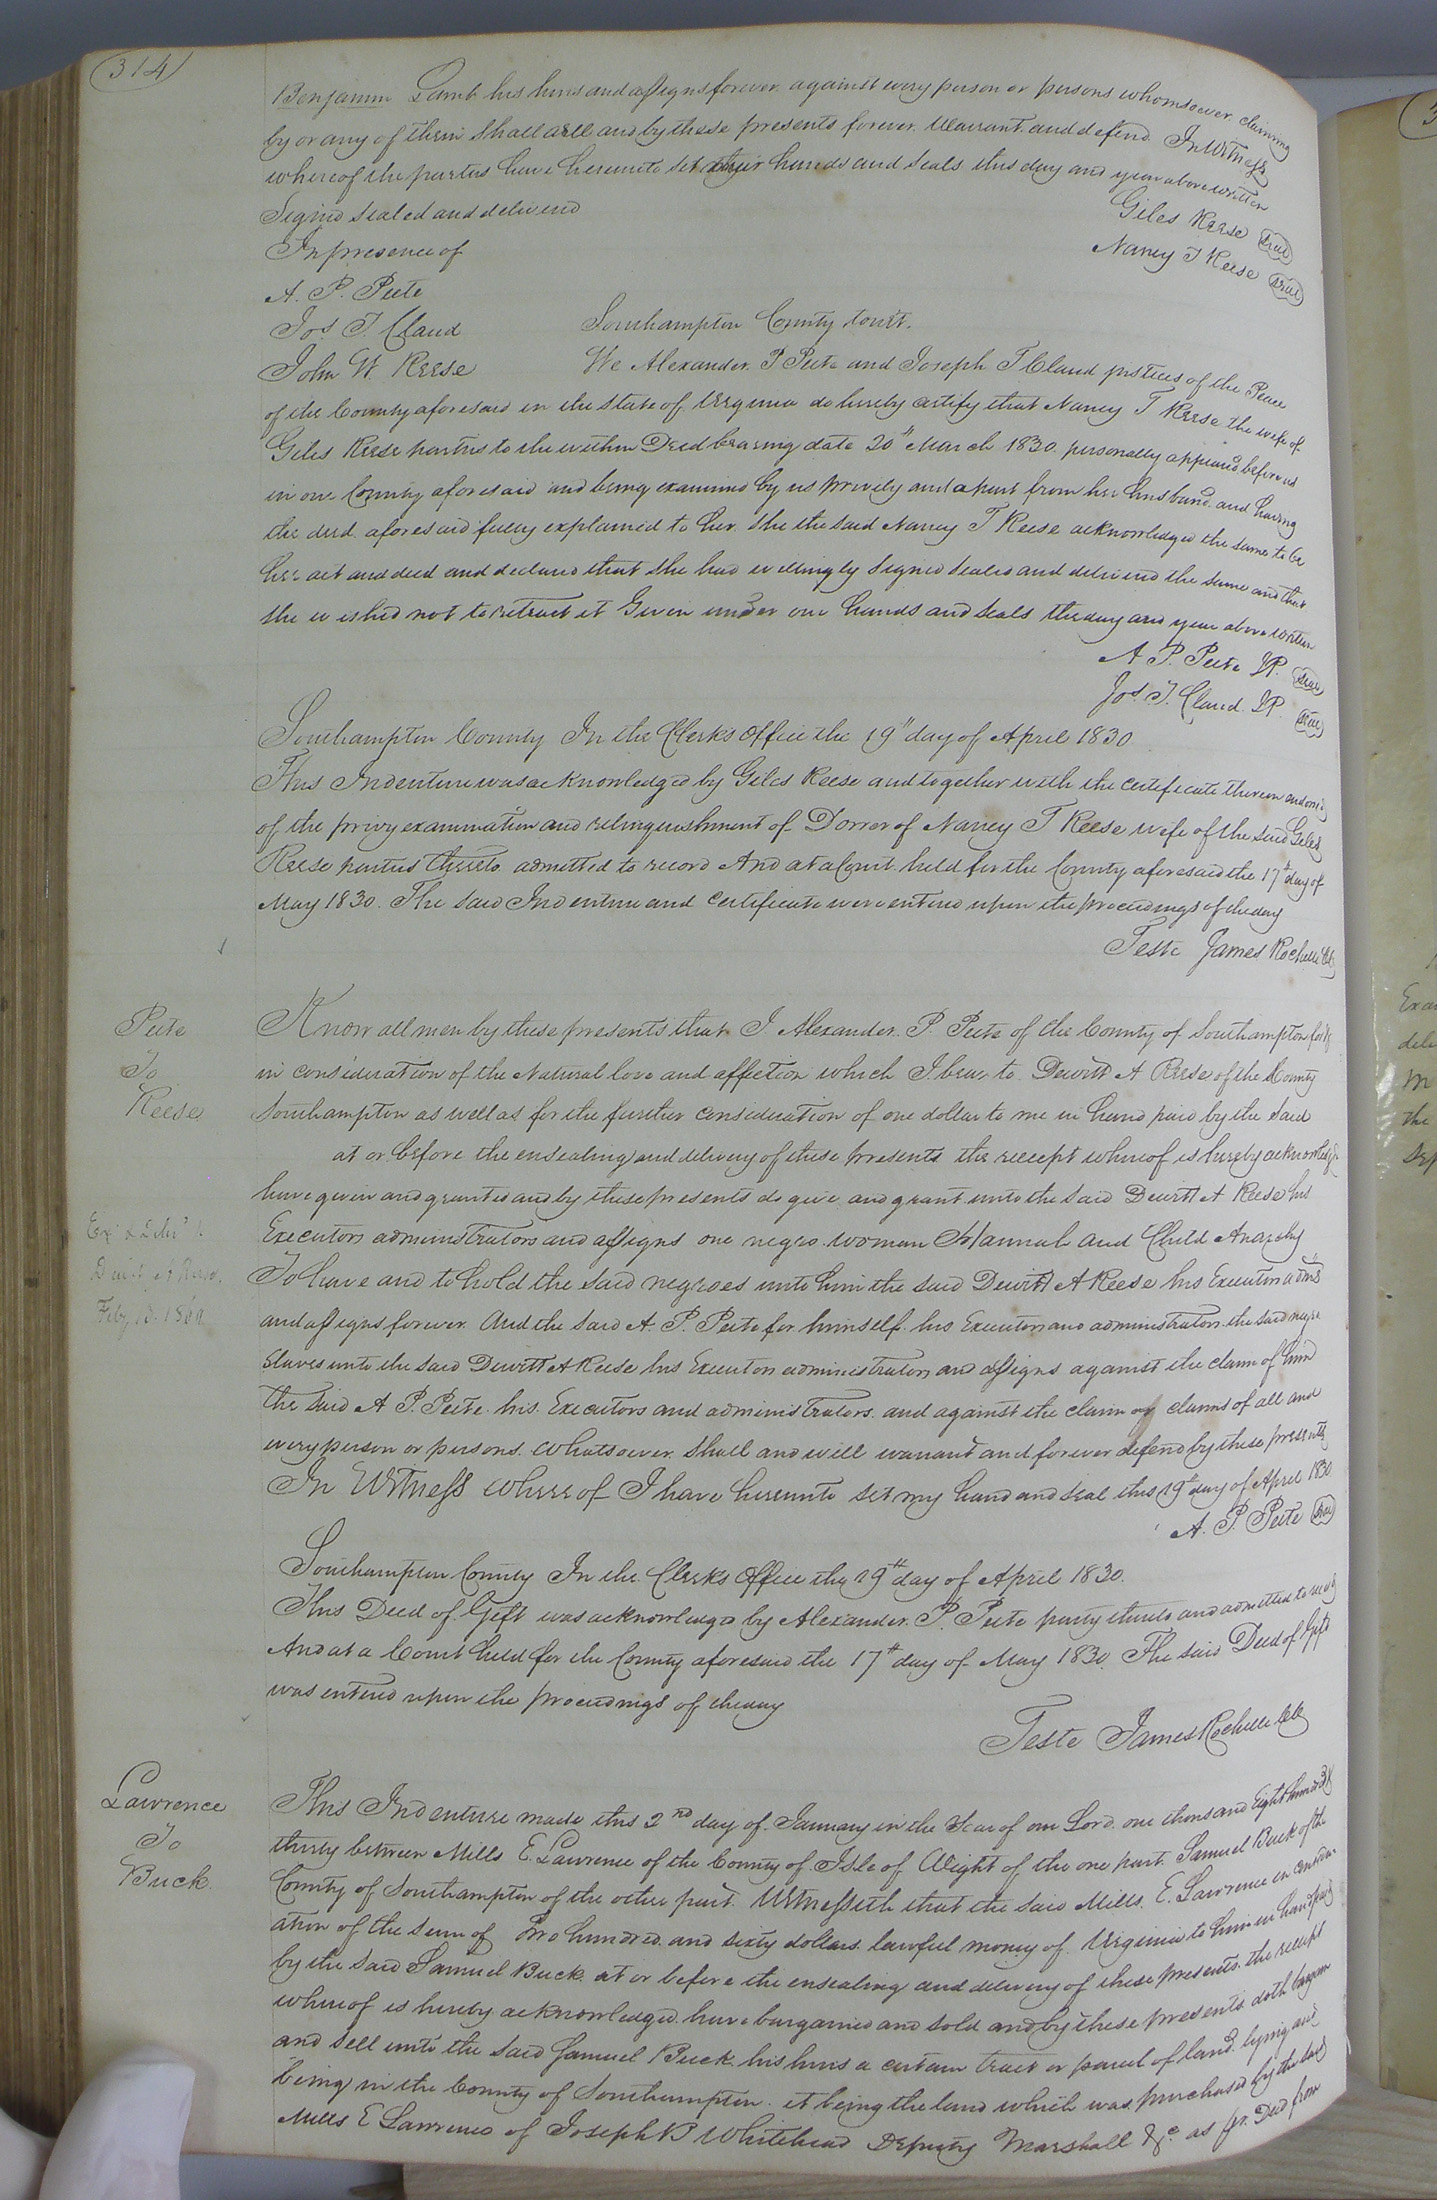 314
Benjamin Lamb his heirs and assigns forever against every person or persons whomsoever claiming
by or any of them shall will and by these presents forever Warrant and defend In Witness
whereof the parties have hereunto set their hands and seals this day and year above written
Signed sealed and delivered
Giles Reese Seal
In presence of
Nancy T Reese Seal
A. P. Peete
Jos. T. Claud
Southampton County towit.
John W. Reese
We Alexander P Peete and Joseph T Claud justices of the Peace
of the County aforesaid in the State of Virginia do hereby certify that Nancy T Reese the wife of
Giles Reese parties to the within Deed bearing date 20th March 1830. personally appeared before us
in our County aforesaid and being examined by us privily and apart from her husband and having
the deed aforesaid fully explained to her. She the said Nancy T Reese acknowledged the same to be
her act and deed and declared that she had willingly signed sealed and delivered the same and that
she wished not to retract it Given under our hands and seals the day and year above written
A P. Peete JP. Seal
Jos. T. Claud JP. Seal
Southampton County In the Clerks Office the 19th day of April 1830
This Indenture was acknowledged by Giles Reese and together with the certificate thereon endorsed
of the privy examination and relinquishment of Dower of Nancy T Reese wife of the said Giles
Reese parties thereto admitted to record And at a Court held for the County aforesaid the 17th day of
May 1830. The said Indenture and certificate were entered upon the proceedings of the day
Teste James Rochelle Clk
Peete
To
Reese
Know all men by these presents that I Alexander P. Peete of the County of Southampton for &
in consideration of the Natural love and affection which I bear to Dewitt A Reese of the County
Southampton as well as for the further consideration of one dollar to me in hand paid by the said
at or before the ensealing and delivery of these presents the receipt whereof is hereby acknowledged
have given and granted and by these presents do give and grant unto the said Dewitt A Reese his
Executors administrators and assigns one negro woman Hannah and Child Anarchy
To have and to hold the said negroes unto him the said Dewitt A Reese his Executors admrs
and assigns forever And the said A. P. Peete for himself his Executors and administrators the said negro
Slaves unto the said Dewitt A Reese his Executors administrators and assigns against the claim of him
the said A P. Peete his Executors and administrators and against the claim or claims of all and
every person or persons whatsoever shall and will warrant and forever defend by these presents
In Witness whereof I have hereunto set my hand and seal this 19th day of April 1830
A. P. Peete Seal
Southampton County In the Clerks Office the 19th day of April 1830.
This Deed of Gift was acknowledged by Alexander P. Peete party thereto and admitted to record
And at a Court held for the County aforesaid the 17th day of May 1830. The said Deed of Gift
was entered upon the proceedings of the day
Teste James Rochelle Clk
Lawrence
To
Buck.
This Indenture made this 2nd day of January in the Year of our Lord one thousand Eight hundred &
thirty between Mills E. Lawrence of the County of Isle of Wight of the one part Samuel Buck of the
County of Southampton of the other part. Witnesseth that the said Mills E. Lawrence in consider-
ation of the sum of two hundred and sixty dollars lawful money of Virginia to him in hand paid
by the said Samuel Buck at or before the ensealing and delivery of these presents the receipt
whereof is hereby acknowledged have bargained and sold and by these presents doth bargain
and sell unto the said Samuel Buck his heirs a certain tract or parcel of land lying and
being in the County of Southampton it being the land which was purchased by the said
Mills E Lawrence of Joseph B Whitehead Deputy Marshall &c as pr. Deed from